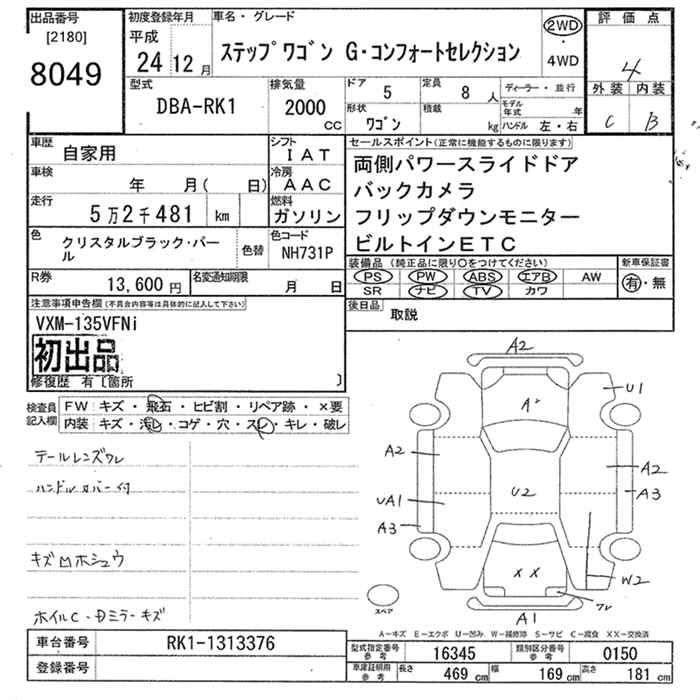 出品番号
[2180]
8049
初度登録年月
平成
24 12月
車名・グレード
ステップワゴン G・コンフォートセレクション
2WD
・
4WD
評価点
4
外装 内装
C B
型式
DBA-RK1
排気量
2000
CC
ドア
5
定員
8人
形状
ワゴン
積載
kg
ディーラー・並行
モデル年式 年
ハンドル 左・右
車歴
自家用
シフト
IAT
車検
年 月( 日)
冷房
AAC
走行
5万2千481 km
燃料
ガソリン
色
クリスタルブラック・パール
色替
色コード
NH731P
R券
13,600円
名変通知期限
月 日
セールスポイント(正常に機能するものに限ります)
両側パワースライドドア
バックカメラ
フリップダウンモニター
ビルトインETC
装備品(純正品に限り○をつけてください)
PS PW ABS エアB AW
SR ナビ TV カワ
新車保証書
有・無
後日品
取説
注意事項申告欄(不具合内容等は具体的に記入して下さい)
VXM-135VFNi
初出品
修復歴 有〔箇所 〕
検査員記入欄
FW キズ・飛石・ヒビ割・リペア跡・×要
内装 キズ・汚レ・コゲ・穴・スレ・キレ・破レ
テールレンズワレ
ハンドルカバー付
キズ凹ホシュウ
ホイルC-Dミラーキズ
A2
A2
U1
A2
A2
UA1
U2
A3
A3
XX
W2
ワレ
スペア
A1
A-キズ E-エクボ U-凹み W-補修跡 S-サビ C-腐食 XX-交換済
車台番号
RK1-1313376
登録番号
型式指定番号
参考
16345
類別区分番号
参考
0150
車庫証明用
参考
長さ
469cm
幅
169cm
高さ
181cm